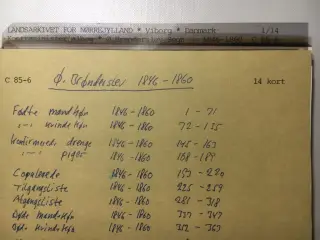 LANDSARKIVET FOR NØRREJYLLAND * Viborg * Danmark 1/14
C 85-6 Ø. Brønderslev 1846-1860 14 kort
Fødte mandkøn 1846-1860 1 - 71
-"- kvindekøn 1846-1860 72-125
Konfirmerede drenge 1846-1860 145-163
-"- piger 1846-1860 168-189
Copulerede 1846-1860 193-220
Tilgangsliste 1846-1860 225-259
Afgangsliste 1846-1860 281-318
Døde mandkøn 1846-1860 337-347
Døde kvindekøn 1846-1860 352-363